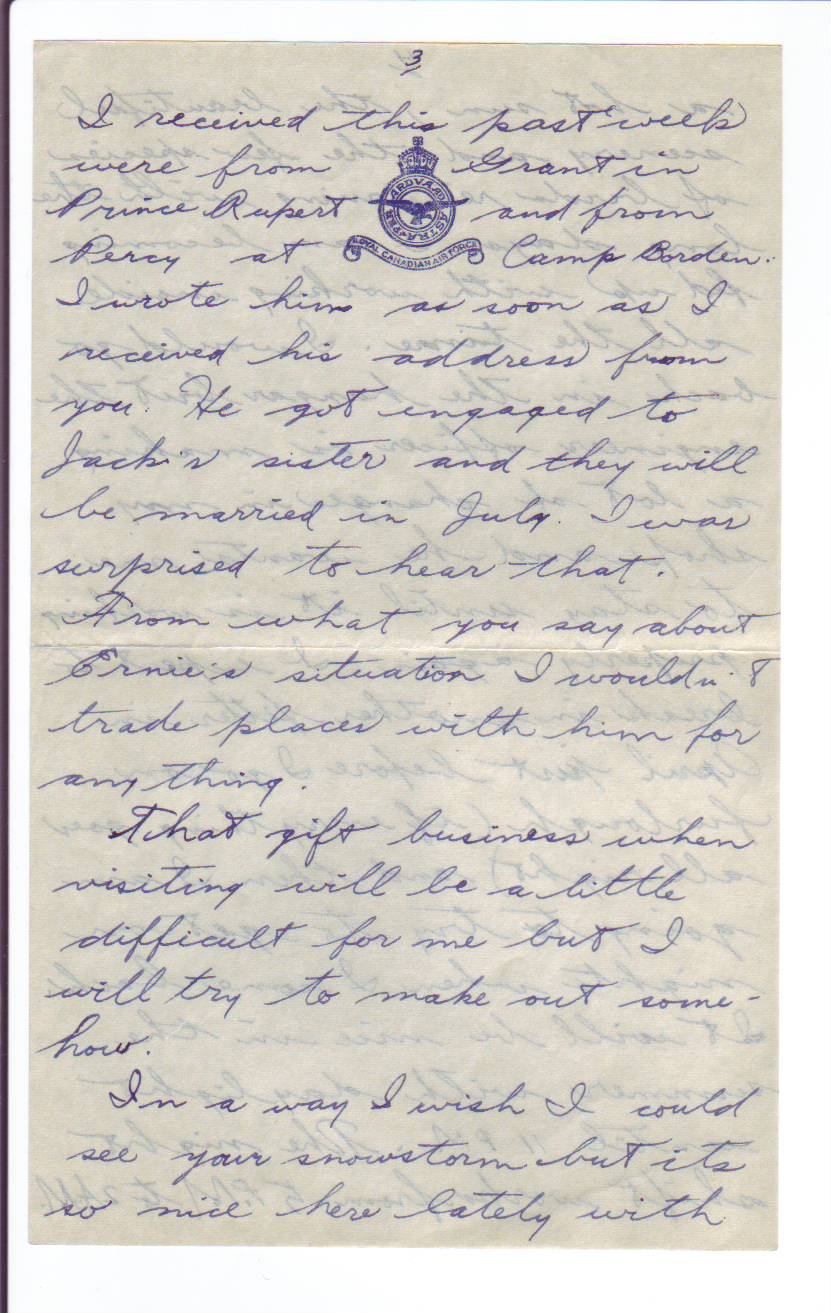 3
I received this past week
were from Grant in
Prince Rupert and from
PER ARDVA AD ASTRA
ROYAL CANADIAN AIR FORCE
Percy at Camp Borden.
I wrote him as soon as I
received his address from
you. He got engaged to
Jack's sister and they will
be married in July. I was
surprised to hear that.
From what you say about
Ernie's situation I wouldn't
trade places with him for
anything.
That gift business when
visiting will be a little
difficult for me but I
will try to make out some-
how.
In a way I wish I could
see your snowstorm but its
so nice here lately with